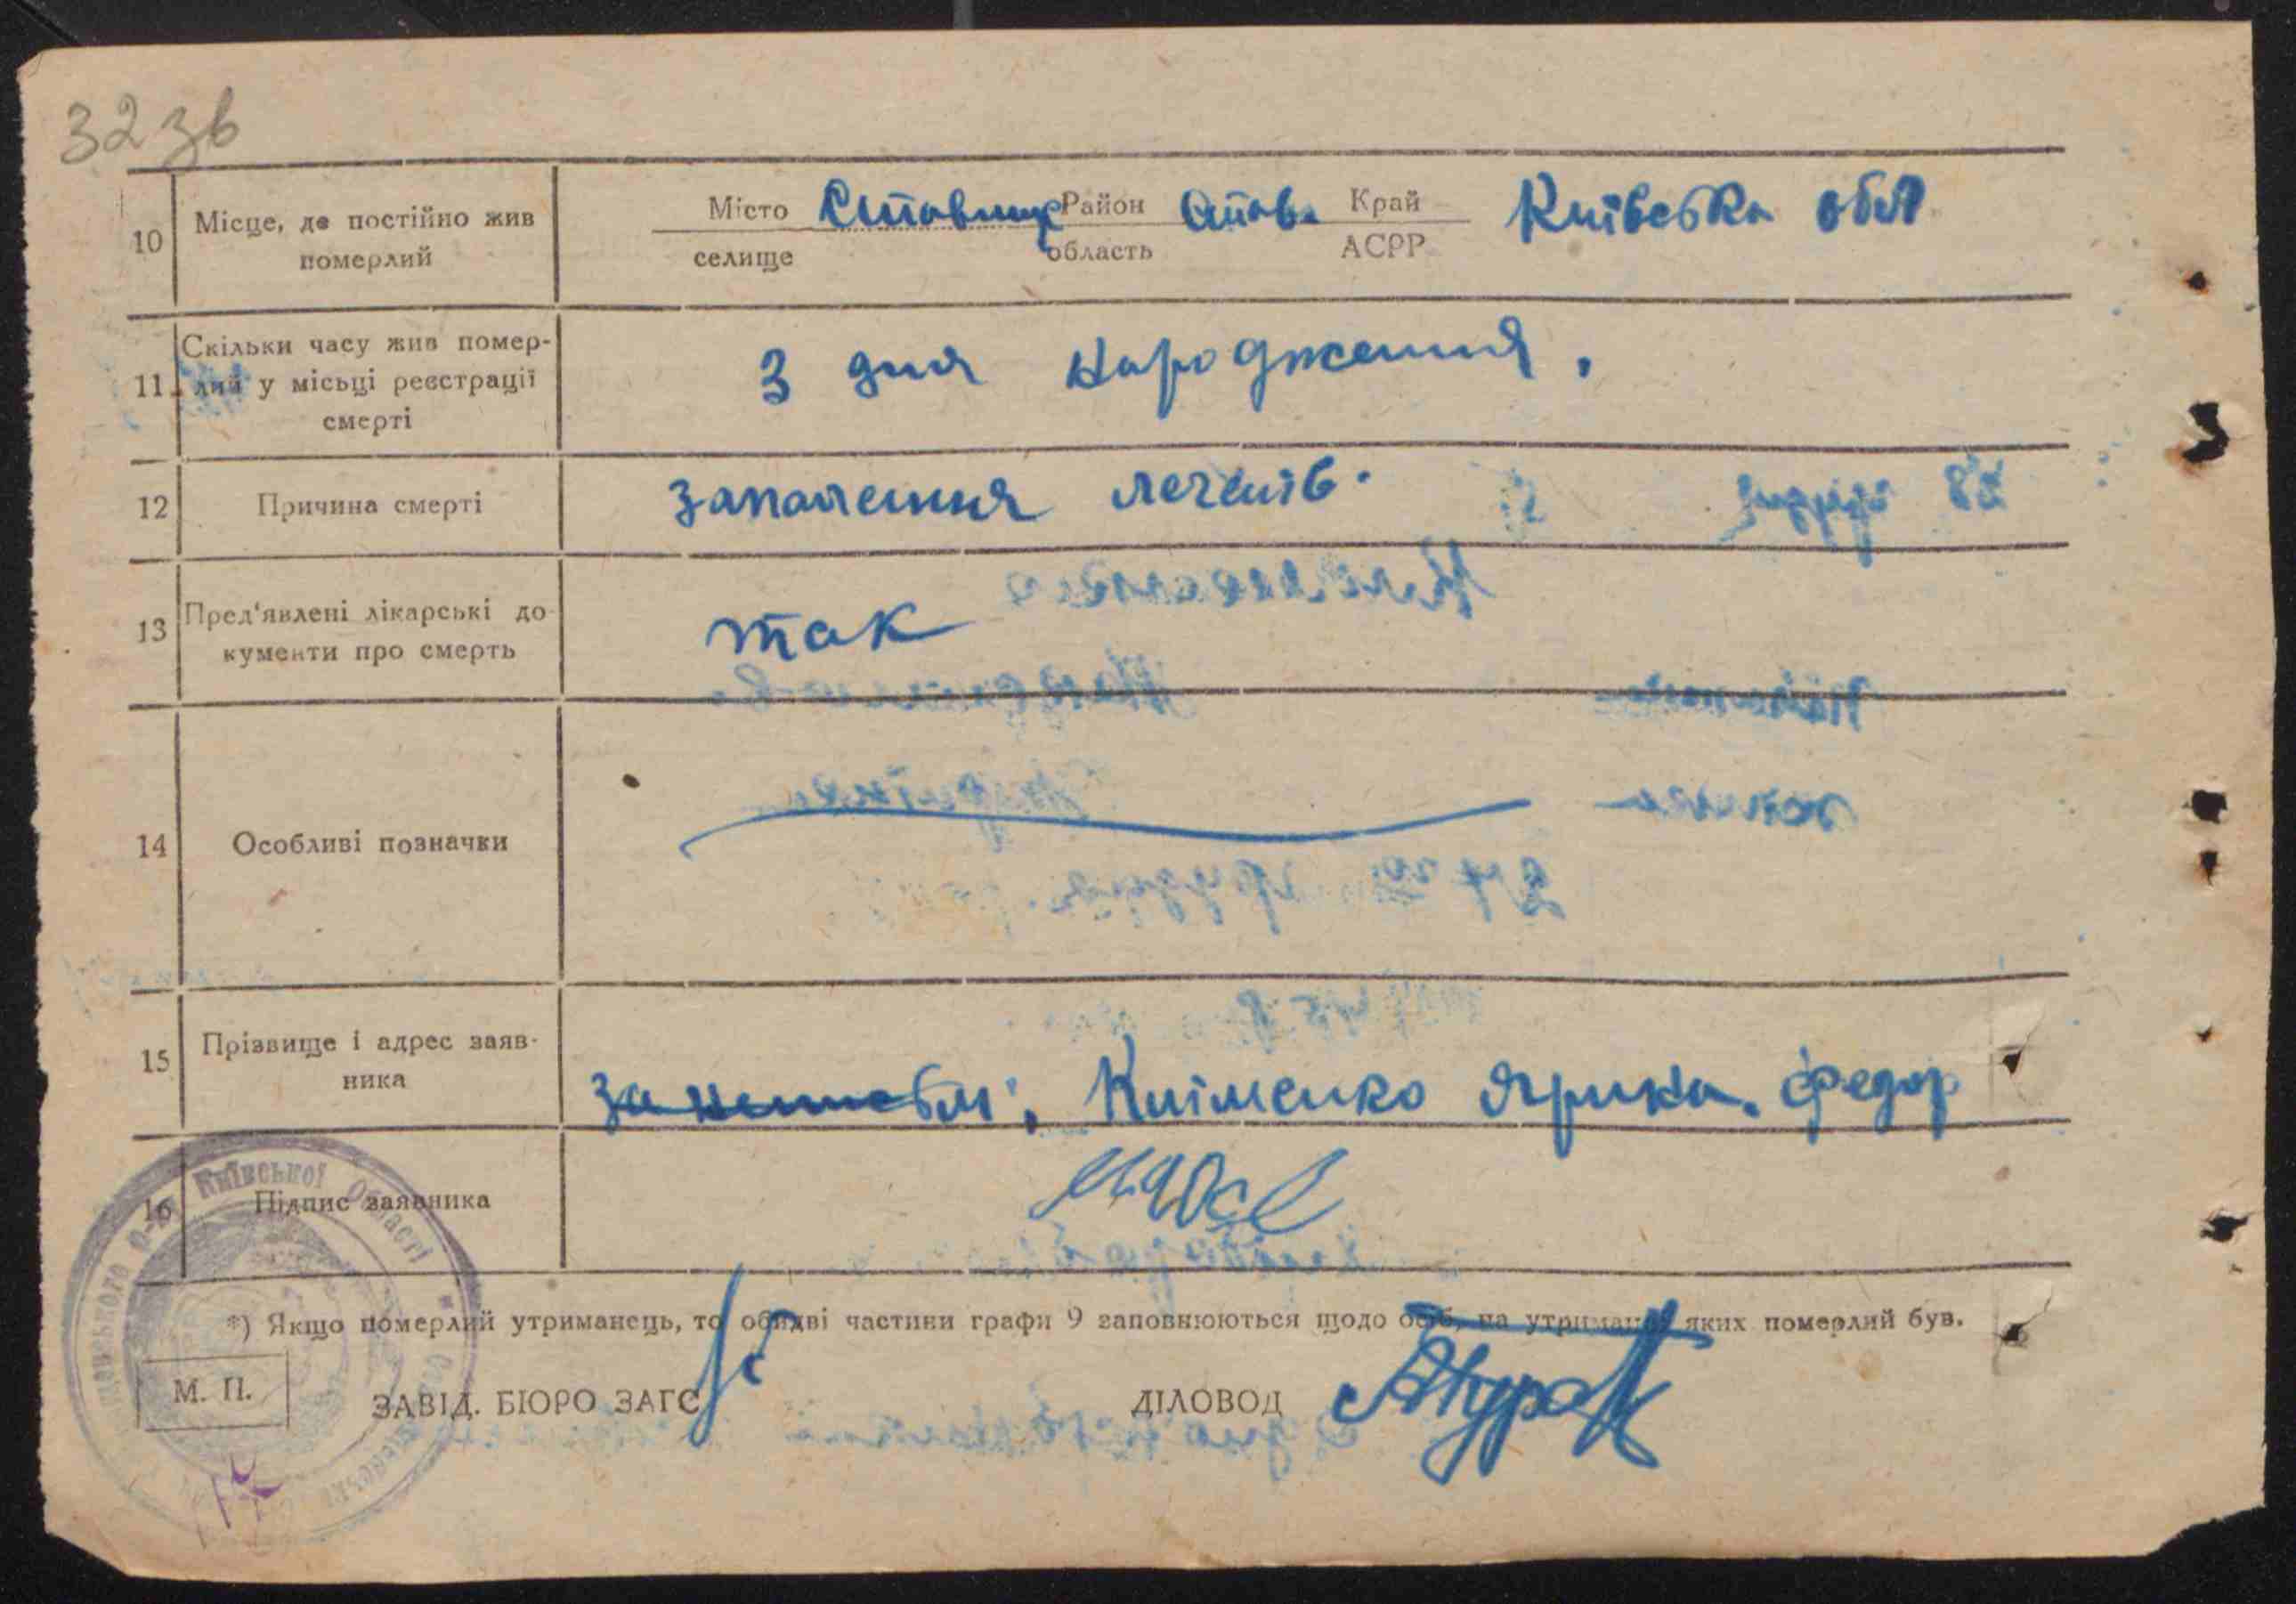 32 зв
10 Місце, де постійно жив померлий
Місто Ставище Район Став. Край Київська обл
селище область АСРР
11. Скільки часу жив помер-
лий у місьці реєстрації
смерті
З дня народження.
12 Причина смерті запалення легенів.
13 Пред'явлені лікарські до-
кументи про смерть
так
14 Особливі позначки
15 Прізвище і адрес заяв-
ника
Кліменко Ярина Федор
16 Підпис заявника
Київської Області
*) Якщо померлий утриманець, то обидві частини графи 9 заповнюються щодо осіб, на утриманні яких померлий був.
М. П.
ЗАВІД. БЮРО ЗАГС ДІЛОВОД